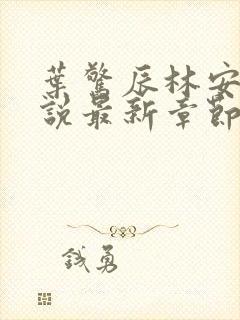 葉驚辰林安
說最新章節
錢勇